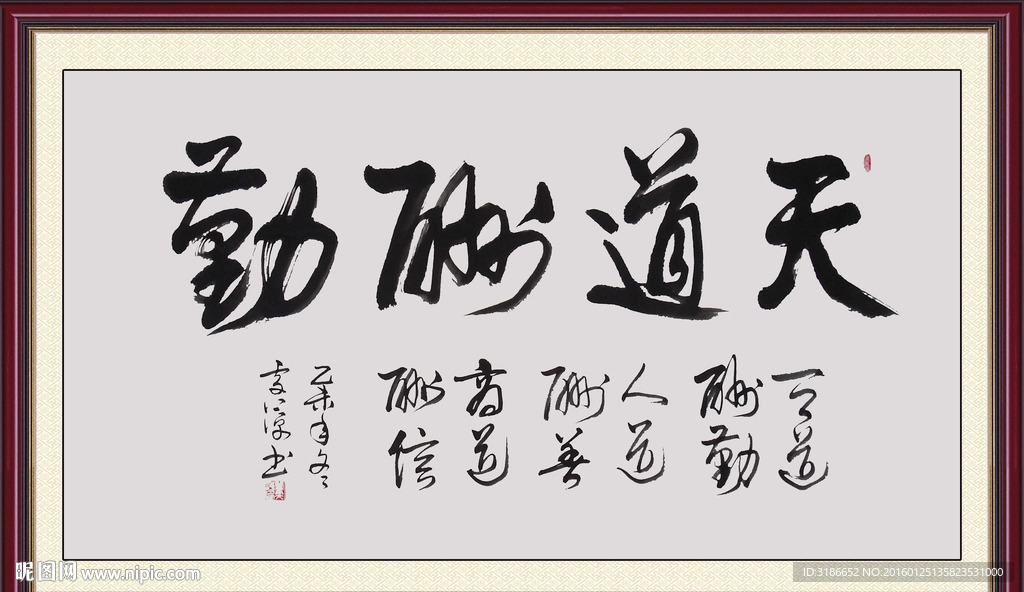 天道酬勤
天道
酬勤
人道
酬善
商道
酬信
乙未年冬
书
昵图网 www.nipic.com
ID:3186652 NO:20160125135823531000